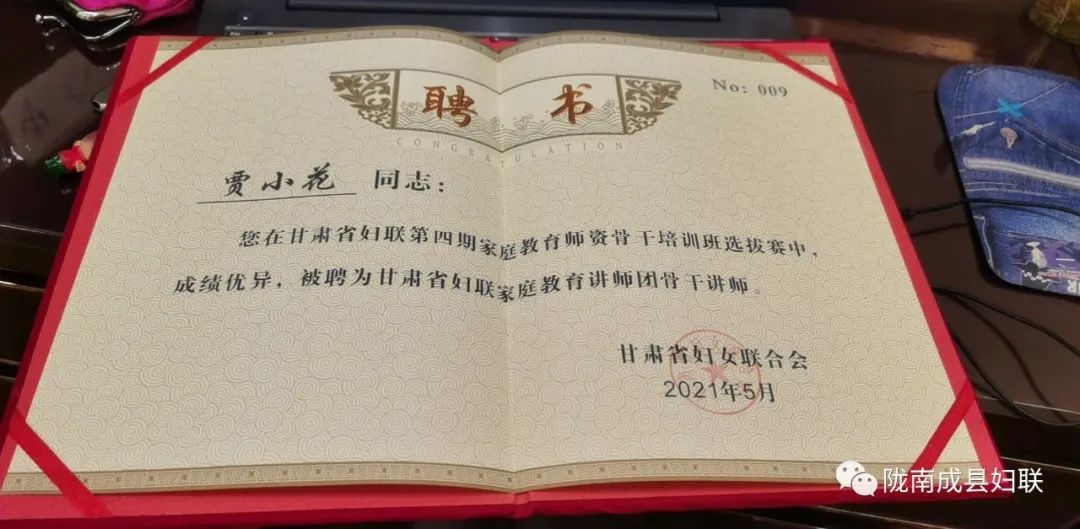 聘书
No: 009
CONGRATULATION
贾小花 同志：
您在甘肃省妇联第四期家庭教育师资骨干培训班选拔赛中，
成绩优异，被聘为甘肃省妇联家庭教育讲师团骨干讲师。
甘肃省妇女联合会
2021年5月
陇南成县妇联